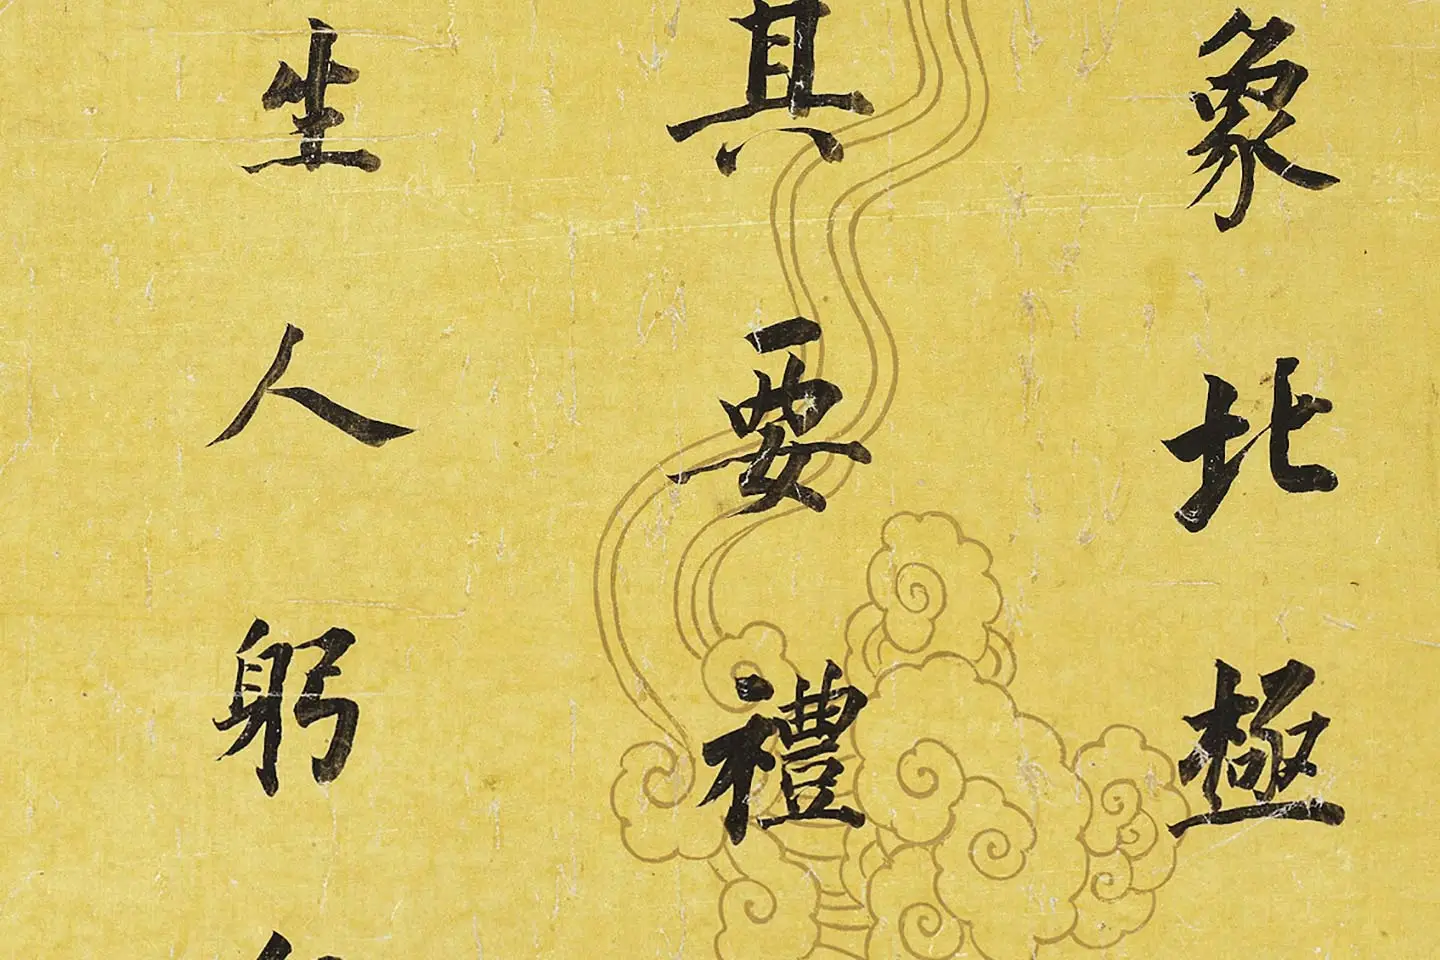 象北極
其要禮
生人躬